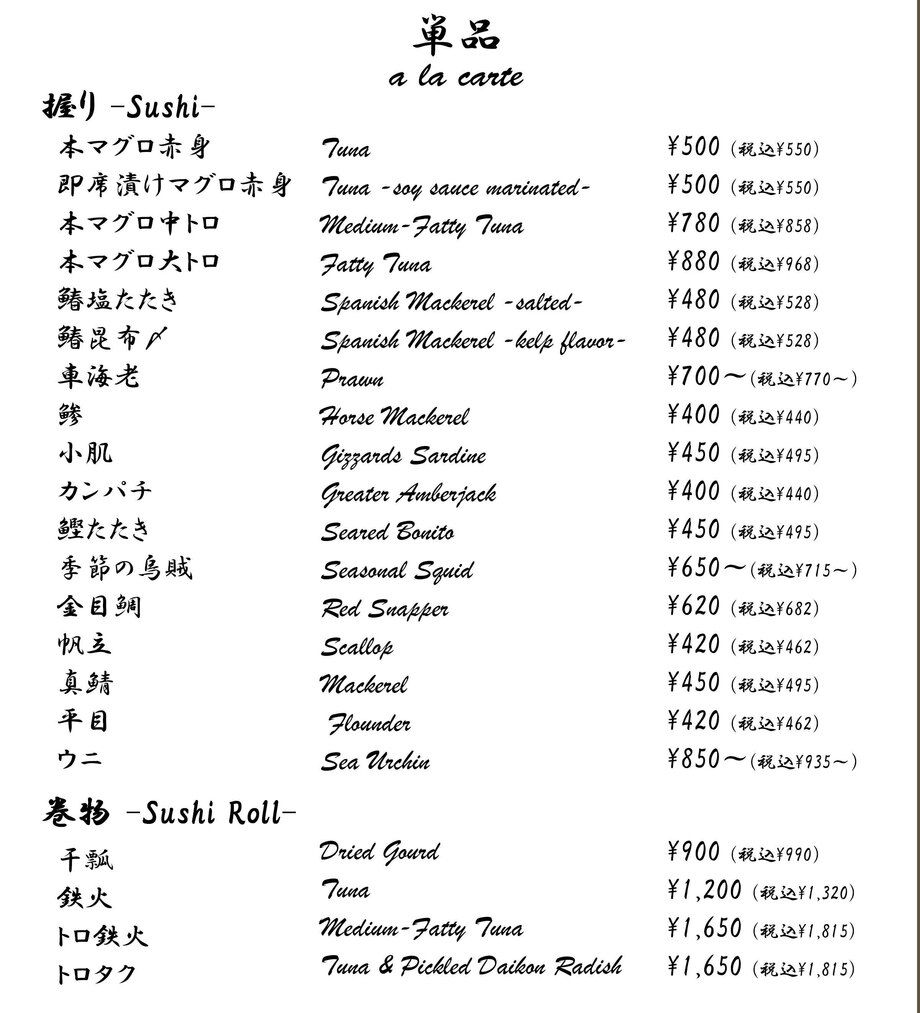 単品
a la carte
握り -Sushi-
本マグロ赤身 Tuna ¥500 (税込¥550)
即席漬けマグロ赤身 Tuna -soy sauce marinated- ¥500 (税込¥550)
本マグロ中トロ Medium-Fatty Tuna ¥780 (税込¥858)
本マグロ大トロ Fatty Tuna ¥880 (税込¥968)
鰆塩たたき Spanish Mackerel -salted- ¥480 (税込¥528)
鰆昆布〆 Spanish Mackerel -kelp flavor- ¥480 (税込¥528)
車海老 Prawn ¥700〜(税込¥770〜)
鯵 Horse Mackerel ¥400 (税込¥440)
小肌 Gizzards Sardine ¥450 (税込¥495)
カンパチ Greater Amberjack ¥400 (税込¥440)
鰹たたき Seared Bonito ¥450 (税込¥495)
季節の烏賊 Seasonal Squid ¥650〜(税込¥715〜)
金目鯛 Red Snapper ¥620 (税込¥682)
帆立 Scallop ¥420 (税込¥462)
真鯖 Mackerel ¥450 (税込¥495)
平目 Flounder ¥420 (税込¥462)
ウニ Sea Urchin ¥850〜(税込¥935〜)
巻物 -Sushi Roll-
干瓢 Dried Gourd ¥900 (税込¥990)
鉄火 Tuna ¥1,200 (税込¥1,320)
トロ鉄火 Medium-Fatty Tuna ¥1,650 (税込¥1,815)
トロタク Tuna & Pickled Daikon Radish ¥1,650 (税込¥1,815)